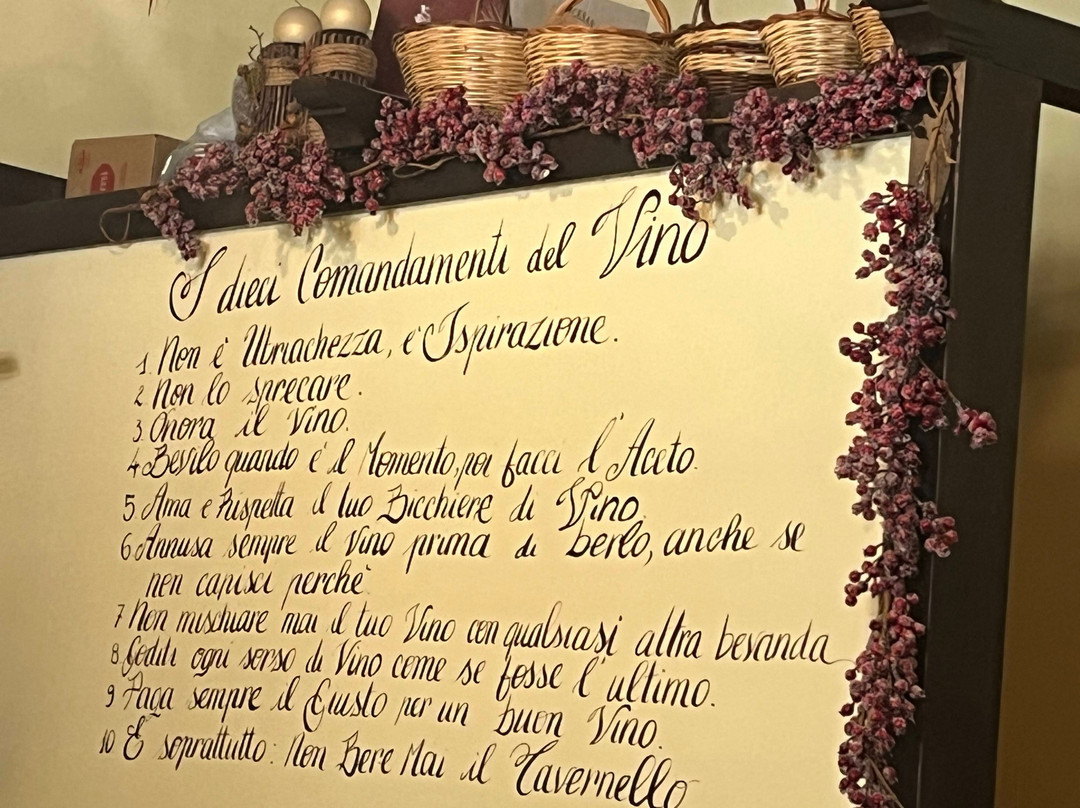 I dieci Comandamenti del Vino
1. Non è Ubriachezza, è Ispirazione.
2. Non lo sprecare.
3. Onora il Vino.
4. Bevilo quando è il Momento, poi facci l'Aceto.
5. Ama e Rispetta il tuo Bicchiere di Vino.
6 Annusa sempre il Vino prima di berlo, anche se
non capisci perchè
7 Non mischiare mai il tuo Vino con qualsiasi altra bevanda
8. Goditi ogni sorso di Vino come se fosse l'ultimo.
9 Paga sempre il Giusto per un buon Vino.
10 E soprattutto: Non Bere Mai il Tavernello